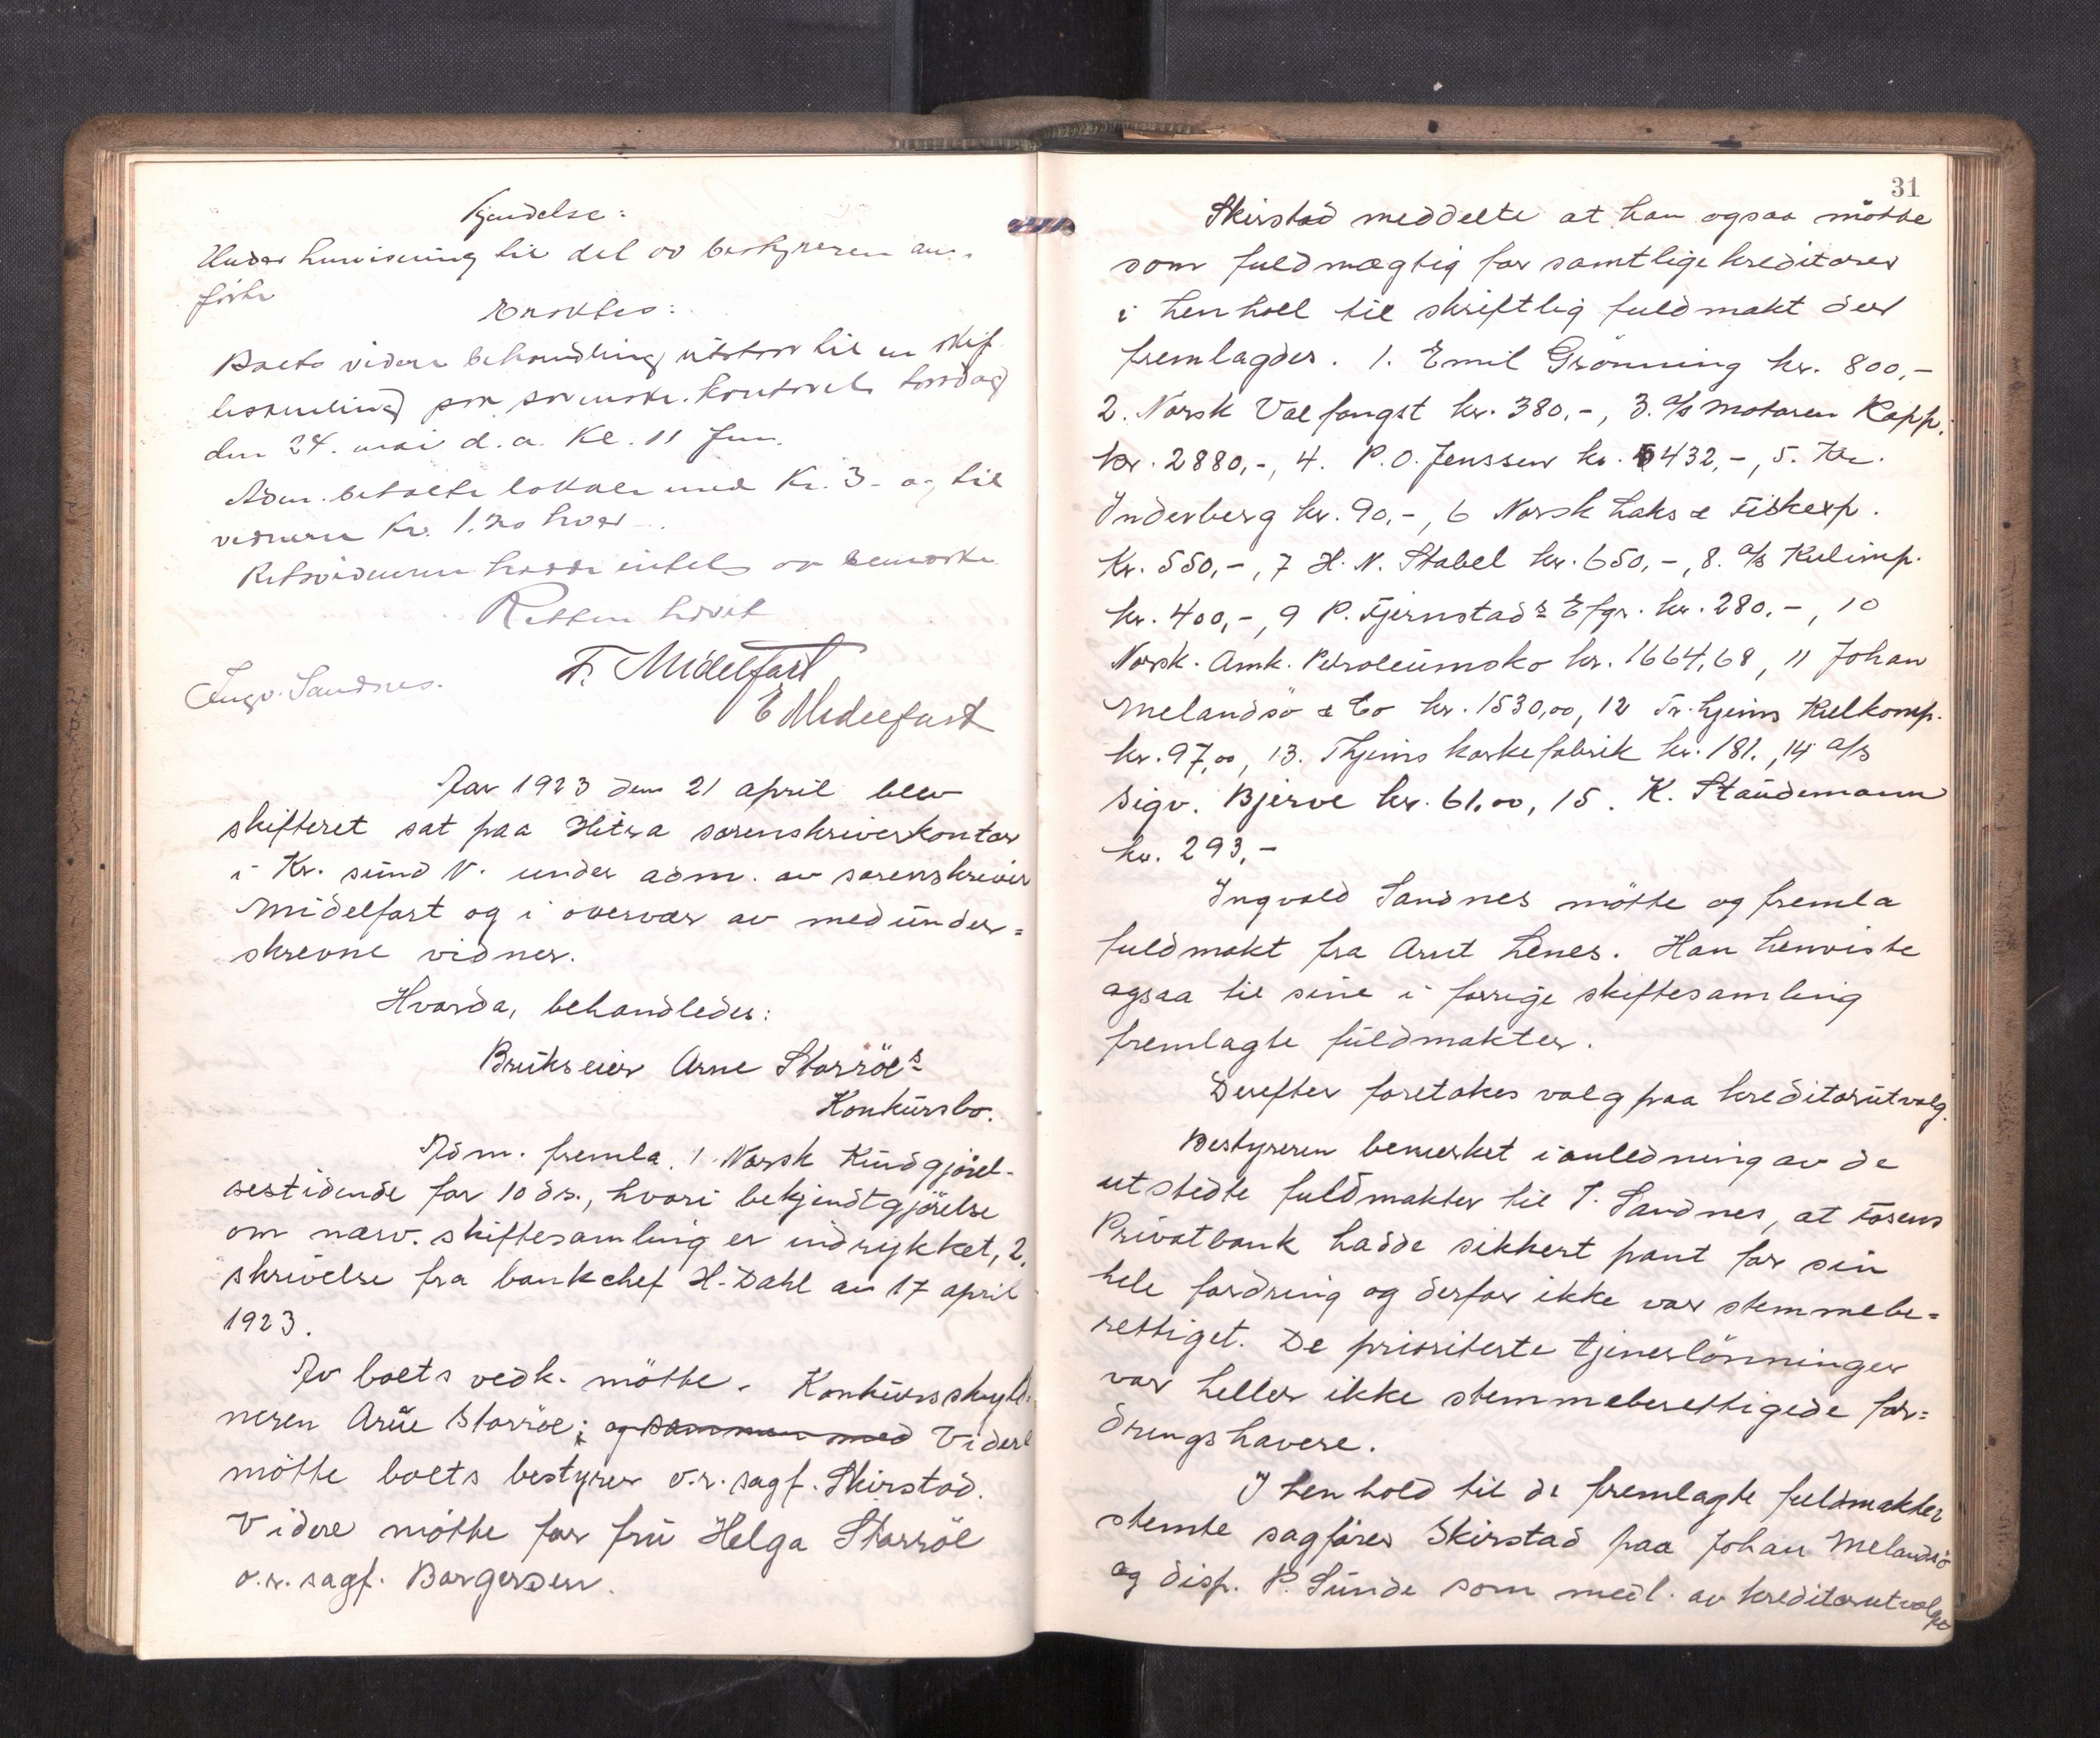 Kjendelse:
Under henvisning til det av bestyreren an-
förte
Eraktes:
Boets videre behandling utstaar til en skif
tesamling paa sorenskr. kontoret torsdag
den 24. mai d.a. Kl. 11 fm.
Adm. betalte lokale med Kr. 3- og til
vidnerne Kr. 1.20 hver.
Retsvidnerne hadde intet at bemerke
Retten hævet
F. Midelfart
Ingv. Sandnes.
E Midelfart
Aar 1923 den 21 april blev
skifteret sat paa Hitra sorenskriverkontor
i Kr. sund N. under adm. av sorenskriver
Midelfart og i overvær av medunder=
skrevne vidner.
Hvorda, behandledes:
Brukseier Arne Storröes
Konkursbo.
Adm. fremla. 1 Norsk Kundgjörel-
sestidende for 10 ds., hvori bekjendtgjörelse
om nærv. skiftesamling er indrykket, 2.
skrivelse fra bankchef H. Dahl av 17 april
1923.
Av boets vedk. mötte. Konkursskyld-
neren Arne Storröe; og sammen med Videre
mötte boets bestyrer o.r. sagf. Skirstad.
Videre mötte for fru Helga Storröe
o.r. sagf. Borgersen.
31
Skirstad meddelte at han ogsaa mötte
som fuldmægtig for samtlige kreditorer
i henhold til skriftlig fuldmakt der
fremlagdes. 1. Emil Grönning kr. 800,-
2. Norsk Valfangst kr. 380.-, 3. A/S Motoren Rapp.
kr. 2880,-, 4. P.O. Jenssen kr. 5432,-, 5. Kr.
Inderberg kr. 90,-, 6 Norsk Laks & Fiskexp.
Kr. 550,-, 7 H. N. Stabel kr. 650,-, 8. A/S Kulimp.
kr. 400,-, 9 P. Fjernstads Efgr. kr. 280.-, 10
Norsk. Amk. Petroleumsko kr. 1664,68, 11 Johan
Melandsö & Co kr. 1530,00, 12 Tr.hjems Kulkomp.
kr. 97,00, 13. Thjems korkefabrik kr. 181., 14 A/S
Sigv. Bjerve kr. 61.00, 15. K. Staudemann
kr. 293,-
Ingvald Sandnes mötte og fremla
fuldmakt fra Arnt Lenes. Han henviste
ogsaa til sine i forrige skiftesamling
fremlagte fuldmakter.
Derefter foretokes valg paa kreditorutvalg.
Bestyreren bemerket i anledning av de
utstedte fuldmakter til I. Sandnes, at Fosens
Privatbank hadde sikkert pant for sin
hele fordring og derfor ikke var stemmebe=
rettiget. De prioriterte tjenerlönninger
var heller ikke stemmeberettigede for=
dringshavere.
I henhold til de fremlagte fuldmakter
stemte sagförer Skirstad paa Johan Melandsö
og disp. P. Sunde som medl. av kreditorutvalget